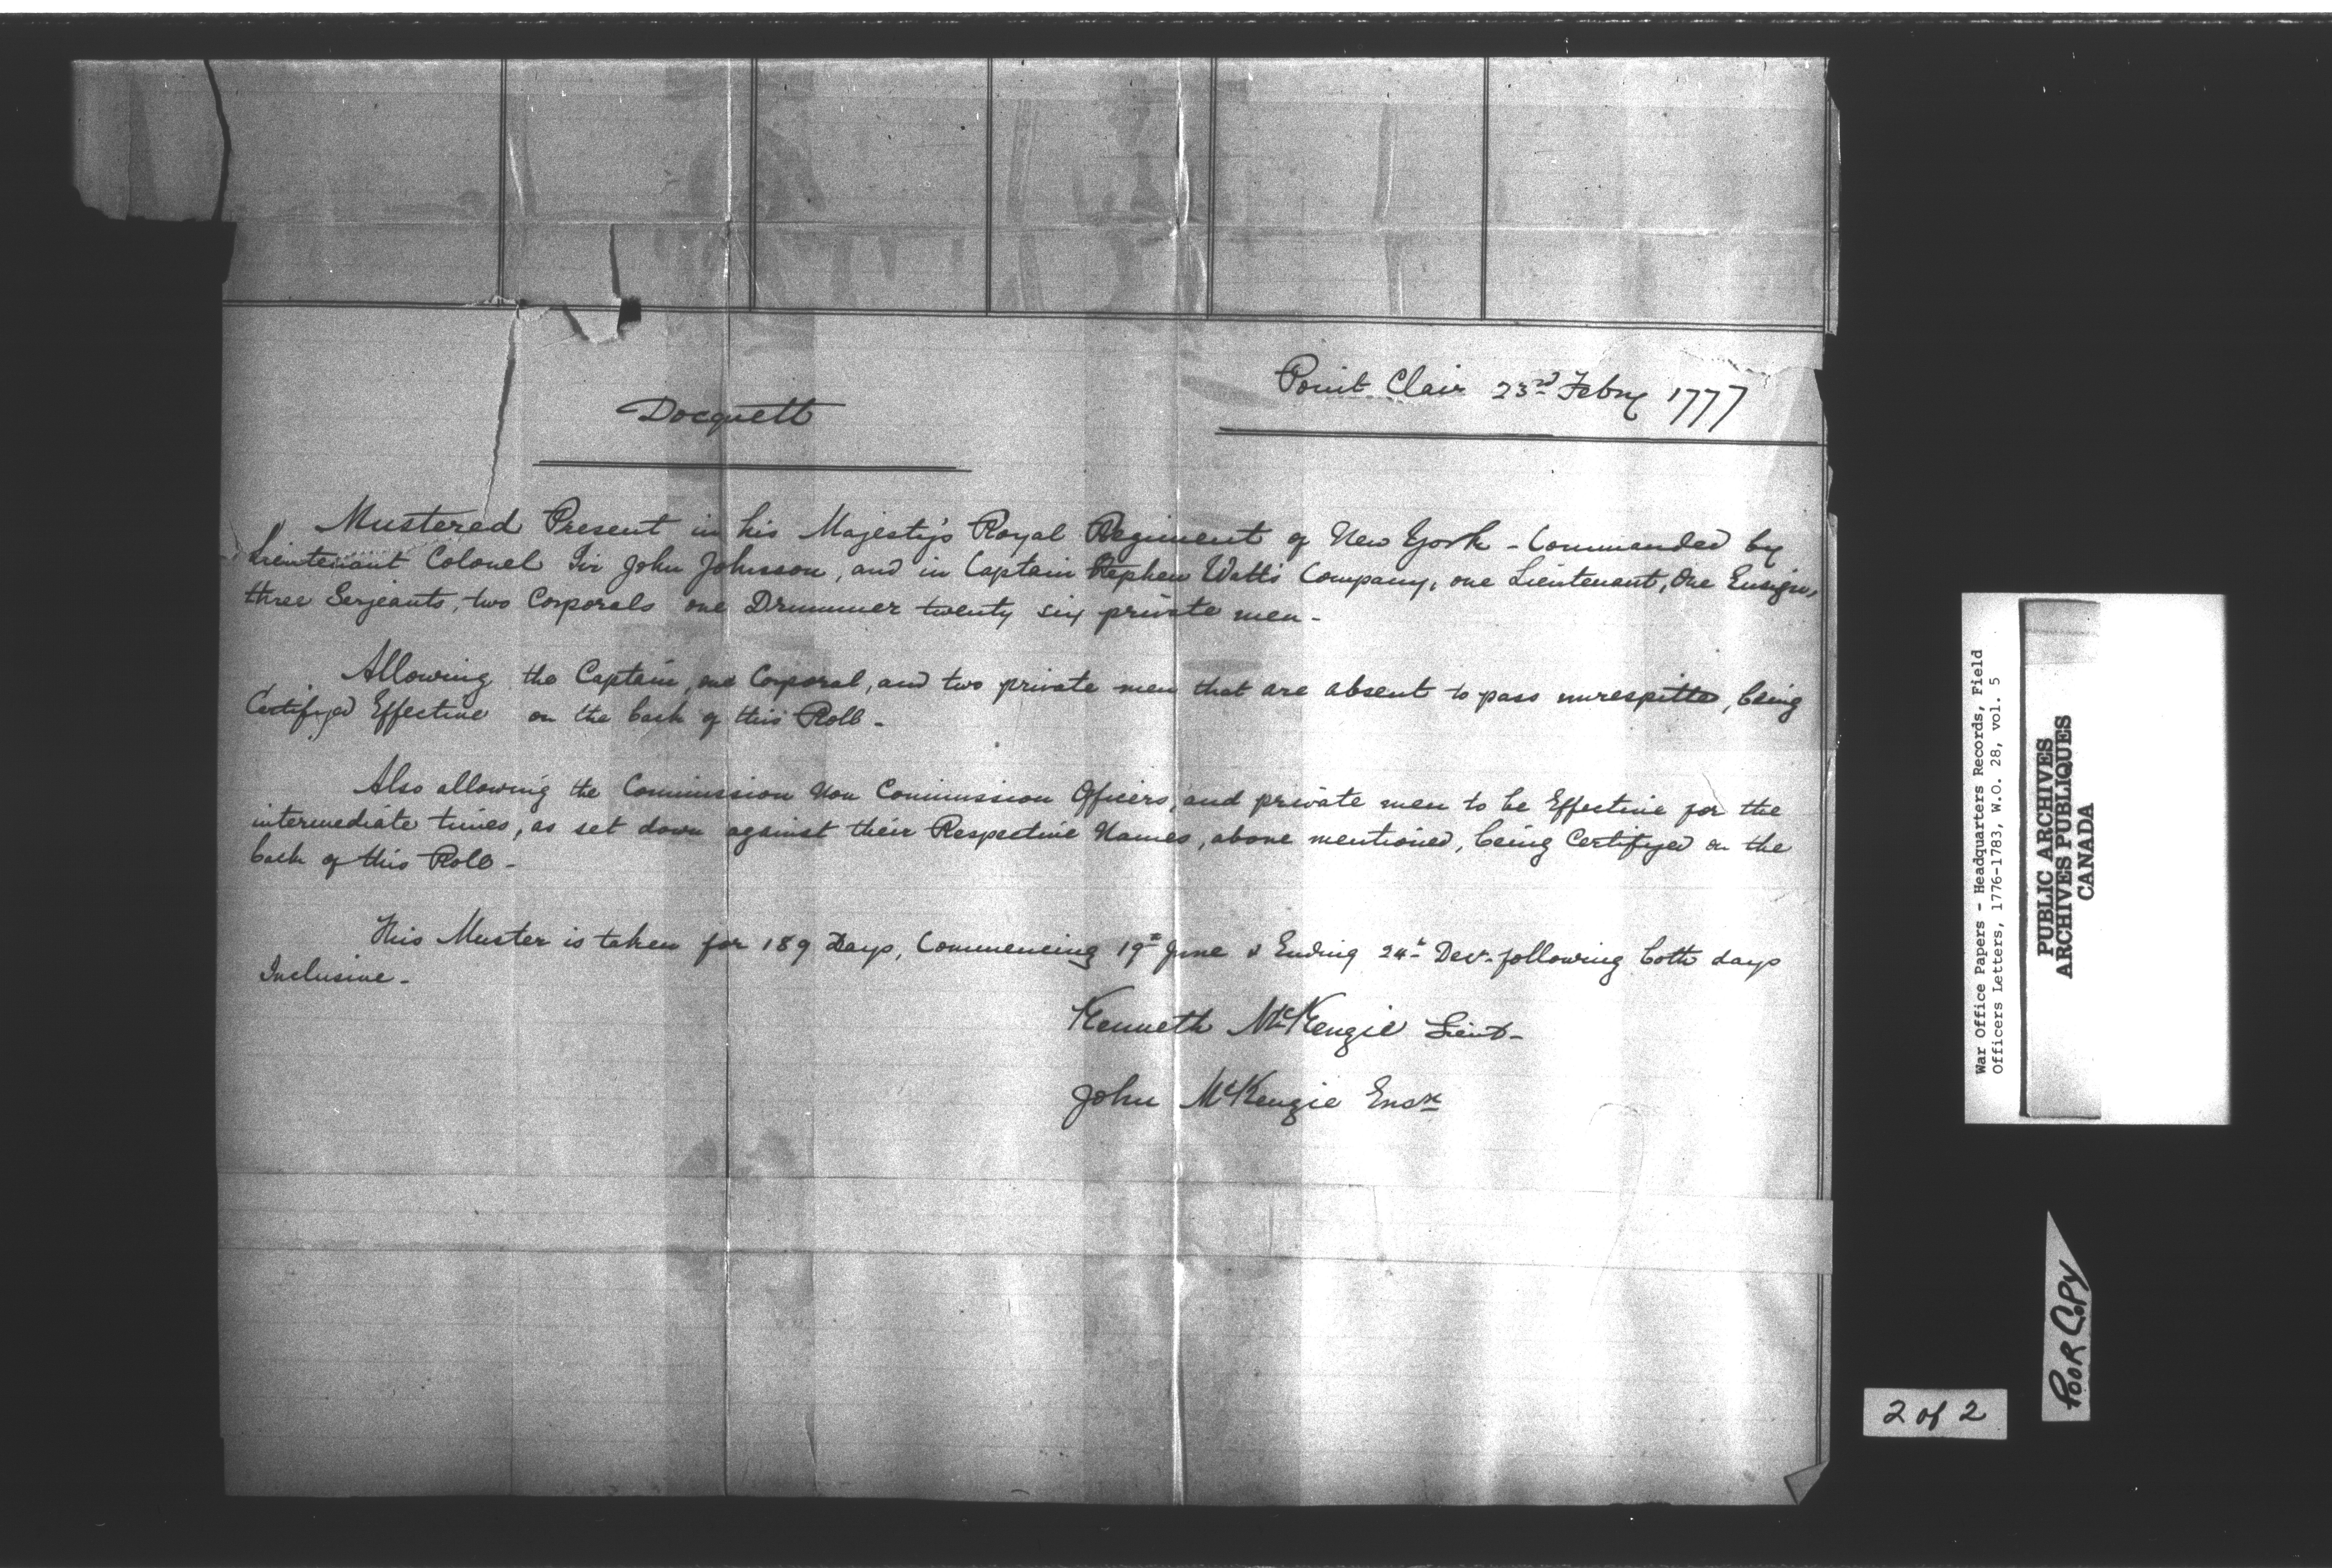 Point Clair 23rd Febry 1777
Docquett
Mustered Present in his Majesty's Royal Regiment of New York - Commanded by
Lieutenant Colonel Sir John Johnson, and in Captain Stephen Watts Company, one Lieutenant, One Ensign,
three Serjeants, two Corporals one Drummer twenty six private men -
Allowing the Captain, one Corporal, and two private men that are absent to pass unrespitted, being
Certifyed Effective on the back of this Roll -
Also allowing the Commission Non Commission Officers, and private men to be Effective for the
intermediate times, as set down against their Respective Names, above mentioned, being Certifyed on the
back of this Roll -
This Muster is taken for 189 Days, Commencing 19th June & Ending 24th Decr. following both days
Inclusive -
Kenneth McKenzie Lieut -
John McKenzie Ensn
War Office Papers - Headquarters Records, Field
Officers Letters, 1776-1783, W.O. 28, vol. 5
PUBLIC ARCHIVES
ARCHIVES PUBLIQUES
CANADA
POOR COPY
2 of 2